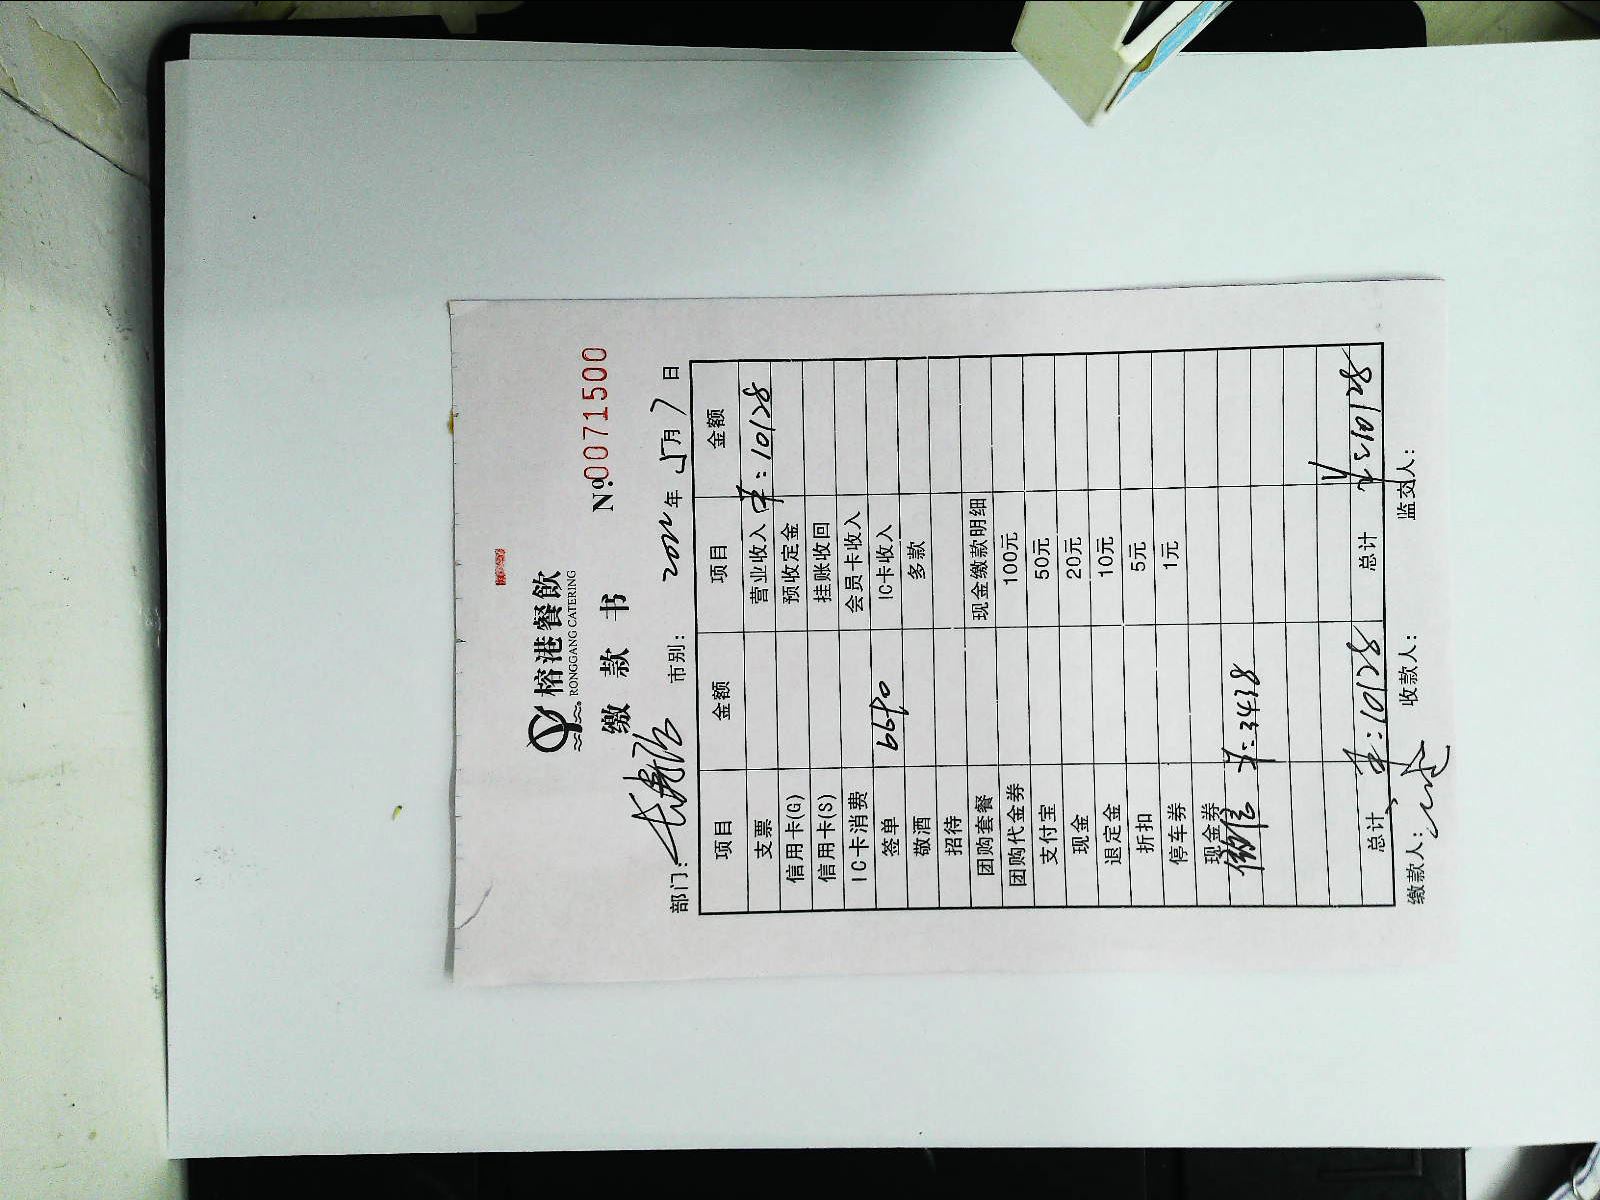 榕港餐飲
RONGGANG CATERING
缴 款 书
№ 0071500
部门: 市别: 2022年5月7日
项目 金额 项目 金额
支票 营业收入 ¥:10128
信用卡(G) 预收定金
信用卡(S) 挂账收回
IC卡消费 会员卡收入
签单 6690 IC卡收入
敬酒 多款
招待
团购套餐 现金缴款明细
团购代金券 100元
支付宝 50元
现金 20元
退定金 10元
折扣 5元
停车券 1元
现金券
微信 ¥:3438
总计 ¥:10128 总计 10128
缴款人: 收款人: 监交人: